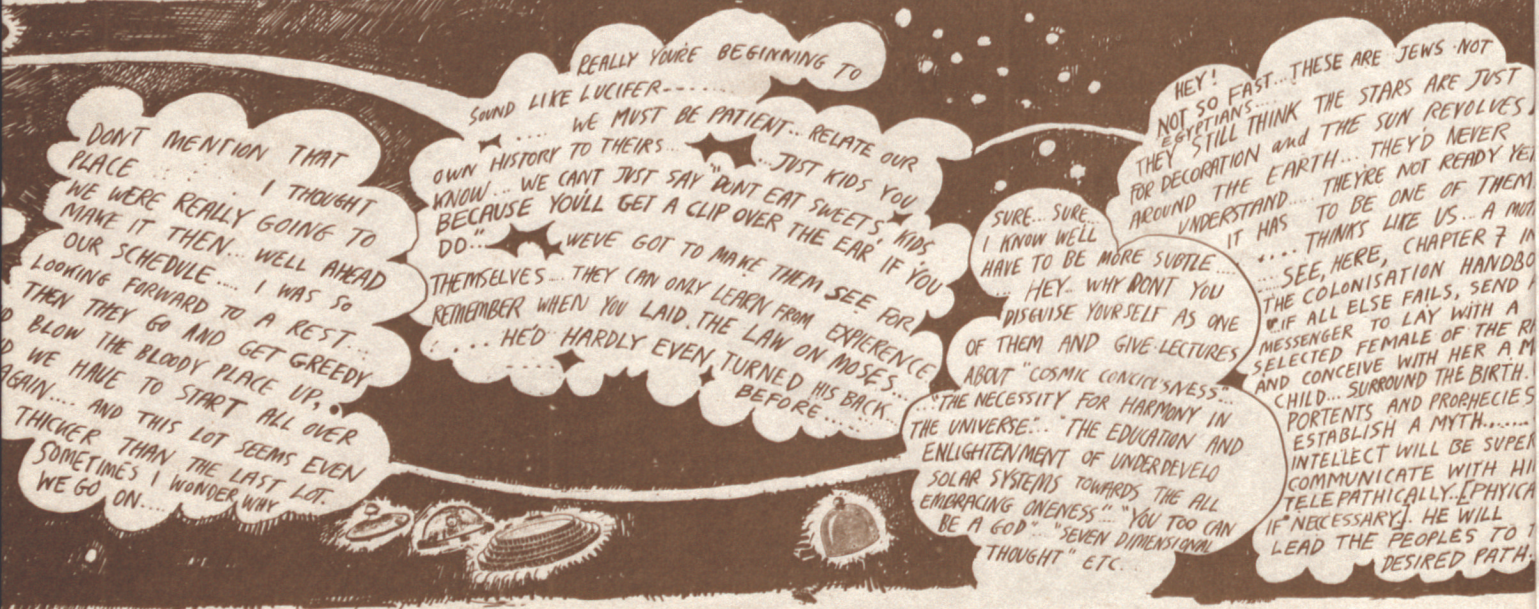 DON'T MENTION THAT
PLACE ........ I THOUGHT
WE WERE REALLY GOING TO
MAKE IT THEN... WELL AHEAD
OUR SCHEDULE .... I WAS SO
LOOKING FORWARD TO A REST...
THEN THEY GO AND GET GREEDY
D BLOW THE BLOODY PLACE UP,
D WE HAVE TO START ALL OVER
AGAIN.... AND THIS LOT SEEMS EVEN
THICKER THAN THE LAST LOT.
SOMETIMES I WONDER WHY
WE GO ON....
REALLY YOU'RE BEGINNING TO
SOUND LIKE LUCIFER.........
.... WE MUST BE PATIENT... RELATE OUR
OWN HISTORY TO THEIRS... ...JUST KIDS YOU
KNOW... WE CANT JUST SAY "DONT EAT SWEETS, KIDS
BECAUSE YOU'LL GET A CLIP OVER THE EAR' IF YOU
DO"... WEVE GOT TO MAKE THEM SEE FOR
THEMSELVES... THEY CAN ONLY LEARN FROM EXPIERENCE
REMEMBER WHEN YOU LAID THE LAW ON MOSES...
..... HE'D HARDLY EVEN TURNED HIS BACK..
BEFORE....
SURE... SURE...
I KNOW WELL
HAVE TO BE MORE SUBTLE....
... HEY.. WHY DONT YOU
DISGUISE YOURSELF AS ONE
OF THEM AND GIVE LECTURES
ABOUT "COSMIC CONCIOUSNESS...
..."THE NECESSITY FOR HARMONY IN
THE UNIVERSE"... "THE EDUCATION AND
ENLIGHTENMENT OF UNDERDEVELO
SOLAR SYSTEMS TOWARDS THE ALL
EMBRACING ONENESS".. "YOU TOO CAN
BE A GOD".. "SEVEN DIMENSIONAL
THOUGHT" ETC..
HEY!
NOT SO FAST... THESE ARE JEWS NOT
EGYPTIANS....
THEY STILL THINK THE STARS ARE JUST
FOR DECORATION and THE SUN REVOLVES
AROUND THE EARTH... THEY'D NEVER
UNDERSTAND.... THEY'RE NOT READY YE
IT HAS TO BE ONE OF THEM
.... THINKS LIKE US... A MU
....SEE, HERE, CHAPTER 7 IN
THE COLONISATION HANDBO
"IF ALL ELSE FAILS, SEND
MESSENGER TO LAY WITH A
SELECTED FEMALE OF THE R
AND CONCEIVE WITH HER A M
CHILD... SURROUND THE BIRTH.
PORTENTS AND PROPHECIES
ESTABLISH A MYTH.......
INTELLECT WILL BE SUPER
COMMUNICATE WITH HI
TELEPATHICALLY..[PHYICA
IF NECCESSARY]. HE WILL
LEAD THE PEOPLES TO
DESIRED PATH